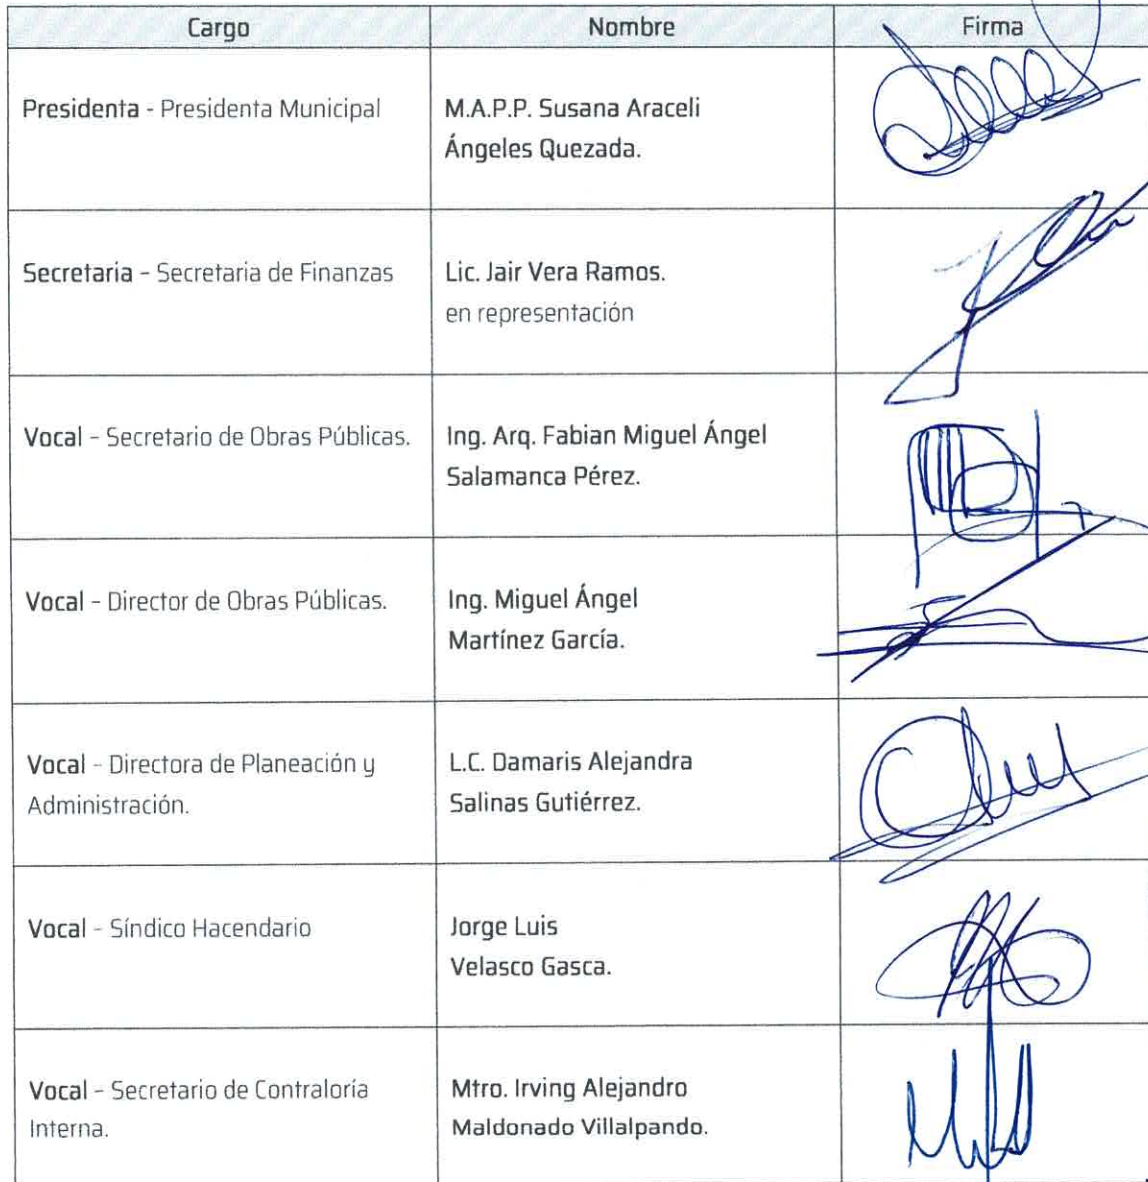 Cargo Nombre Firma
Presidenta - Presidenta Municipal
M.A.P.P. Susana Araceli
Ángeles Quezada.
Secretaria - Secretaria de Finanzas
Lic. Jair Vera Ramos.
en representación
Vocal - Secretario de Obras Públicas.
Ing. Arq. Fabian Miguel Ángel
Salamanca Pérez.
Vocal - Director de Obras Públicas.
Ing. Miguel Ángel
Martínez García.
Vocal - Directora de Planeación y
Administración.
L.C. Damaris Alejandra
Salinas Gutiérrez.
Vocal - Síndico Hacendario
Jorge Luis
Velasco Gasca.
Vocal - Secretario de Contraloría
Interna.
Mtro. Irving Alejandro
Maldonado Villalpando.